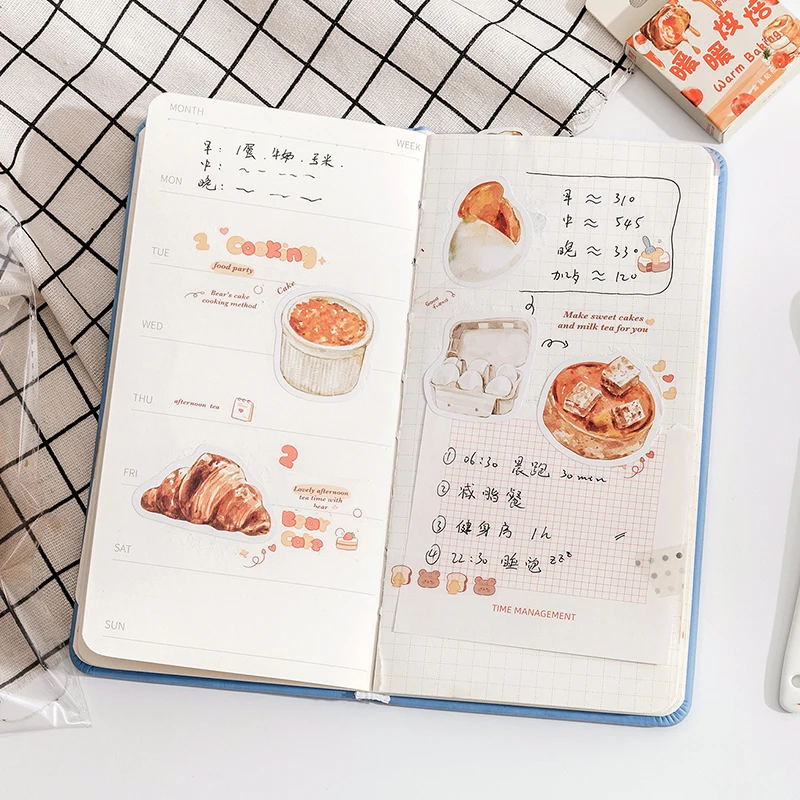 MONTH
WEEK
早: 1蛋.牛奶.玉米.
中:
MON
晚:
TUE
1 Cooking
food party
Bear's cake
cooking method
Cake
WED
THU
afternoon tea
2
FRI
Lovely afternoon
tea time with
bear
Bear
Cake
SAT
SUN
早 ≈ 310
中 ≈ 545
晚 ≈ 330
加与 ≈ 120
Make sweet cakes
and milk tea for you
① 06:30 晨跑 30min
② 减脂餐
③ 健身房 1h
④ 22:30 睡觉 zzz
TIME MANAGEMENT
暖暖烘焙
Warm Baking